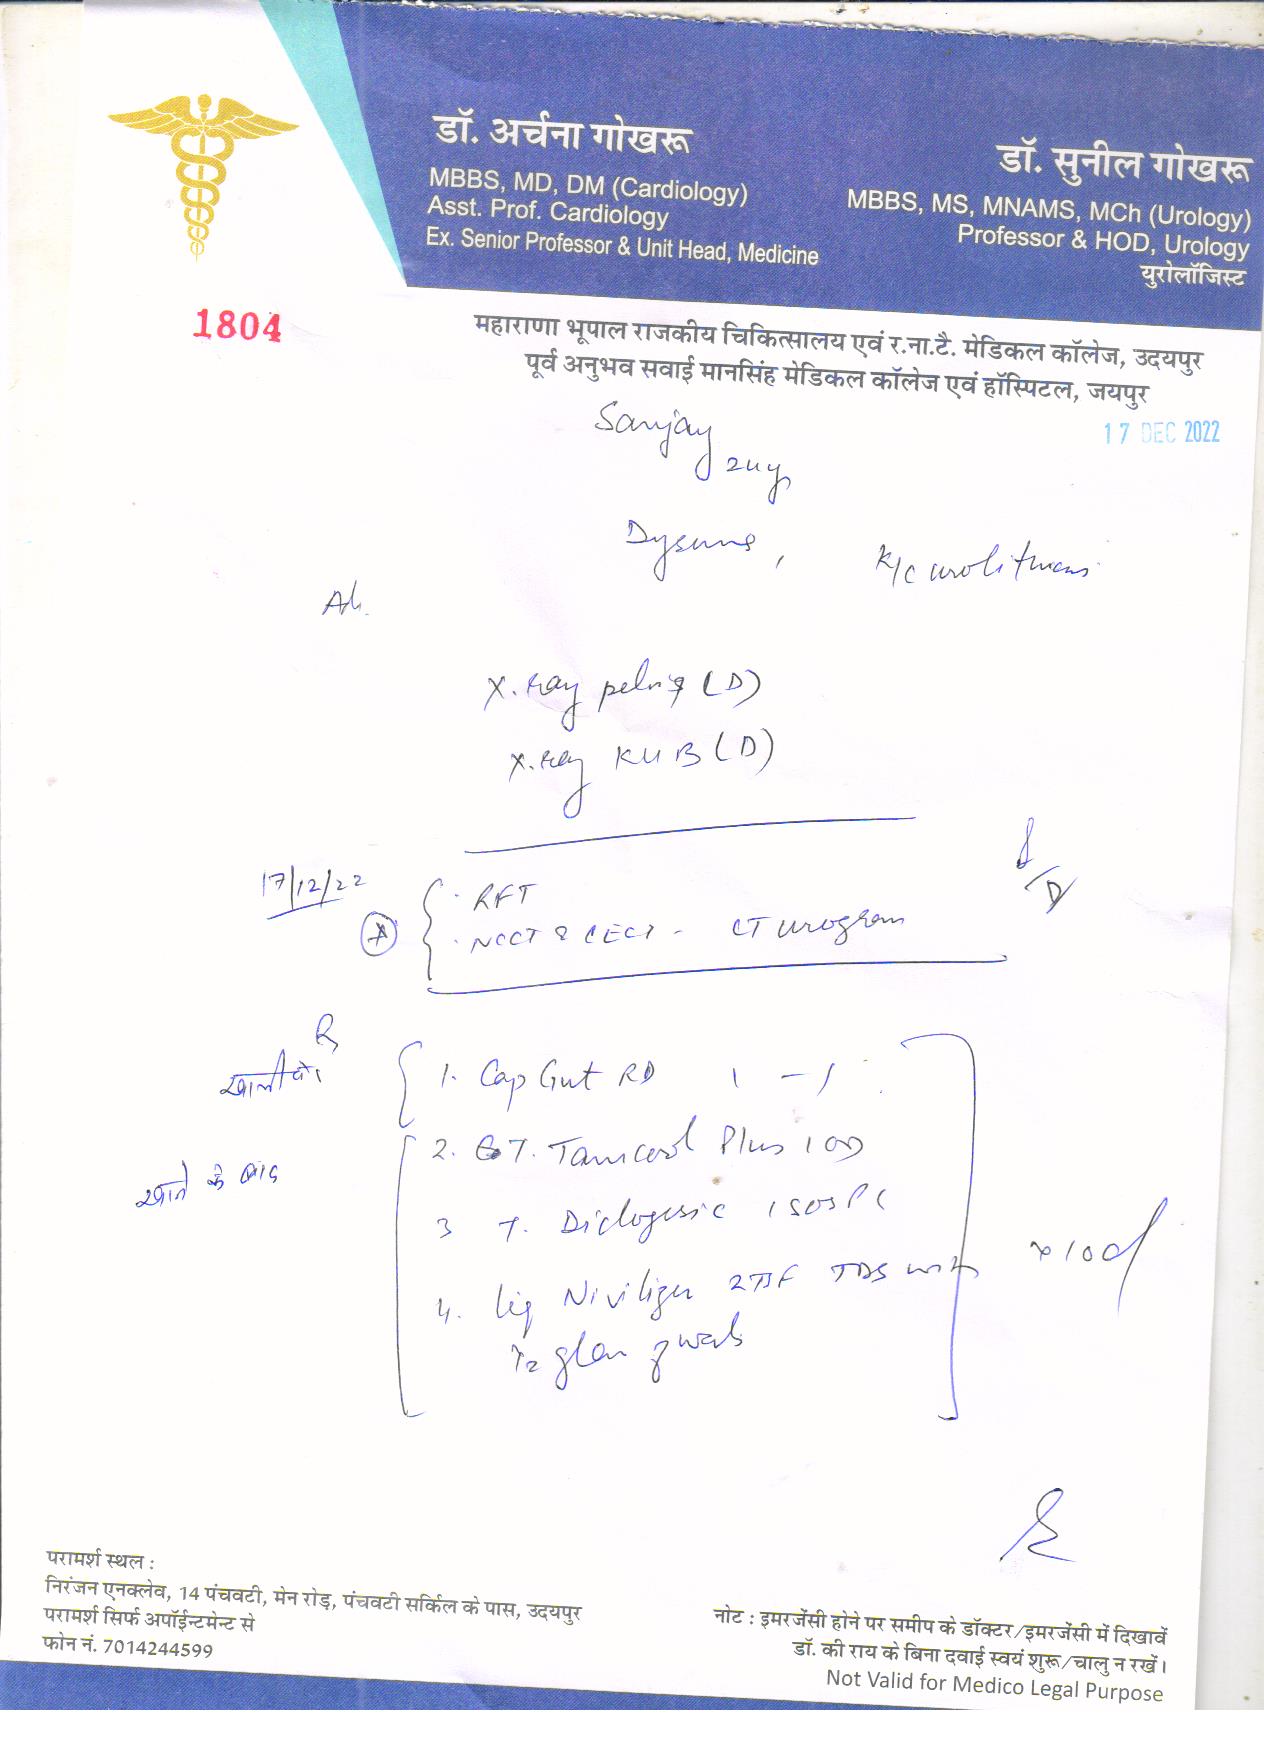 डॉ. अर्चना गोखरू
MBBS, MD, DM (Cardiology)
Asst. Prof. Cardiology
Ex. Senior Professor & Unit Head, Medicine
डॉ. सुनील गोखरू
MBBS, MS, MNAMS, MCh (Urology)
Professor & HOD, Urology
युरोलॉजिस्ट
1804
महाराणा भूपाल राजकीय चिकित्सालय एवं र.ना.टै. मेडिकल कॉलेज, उदयपुर
पूर्व अनुभव सवाई मानसिंह मेडिकल कॉलेज एवं हॉस्पिटल, जयपुर
17 DEC 2022
Sanjay
K/C
X.Ray pelvis (D)
X.Ray KUB (D)
17/12/22
RFT
NCCT & CECT - CT urogram
R
1. Cap Gut RD 1 - 1
खाने के बाद
2. T. Plus 1 OD
3 T. 1 SOS
4. liq TDS with
glass of water
x 10 d
परामर्श स्थल :
निरंजन एनक्लेव, 14 पंचवटी, मेन रोड़, पंचवटी सर्किल के पास, उदयपुर
परामर्श सिर्फ अपॉईन्टमेन्ट से
फोन नं. 7014244599
नोट : इमरजेंसी होने पर समीप के डॉक्टर/इमरजेंसी में दिखावें
डॉ. की राय के बिना दवाई स्वयं शुरू/चालु न रखें।
Not Valid for Medico Legal Purpose